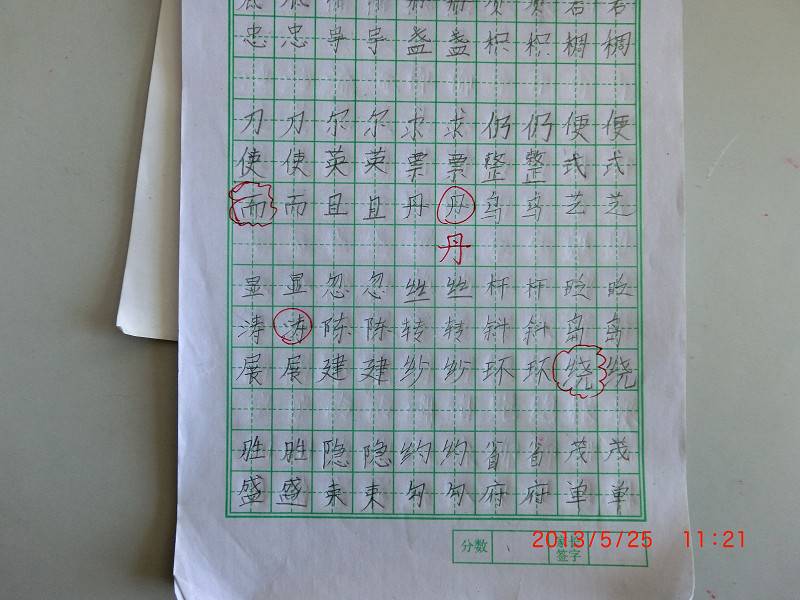 忠 忠 孚 字 盏 盏 枳 枳 椆 椆
刀 刀 尔 尔 求 求 仍 仍 便 便
使 使 英 英 票 票 整 整 式 式
而 而 且 且 丹 丹 鸟 鸟 艺 艺
丹
显 显 忽 忽 丝 丝 杆 杆 眨 眨
涛 涛 陈 陈 转 转 斜 斜 岛 岛
展 展 建 建 纱 纱 环 环 绕 绕
胜 胜 隐 隐 约 约 省 省 茂 茂
盛 盛 束 束 匀 匀 府 府 单 单
分数
家长
签字
2013/5/25 11:21